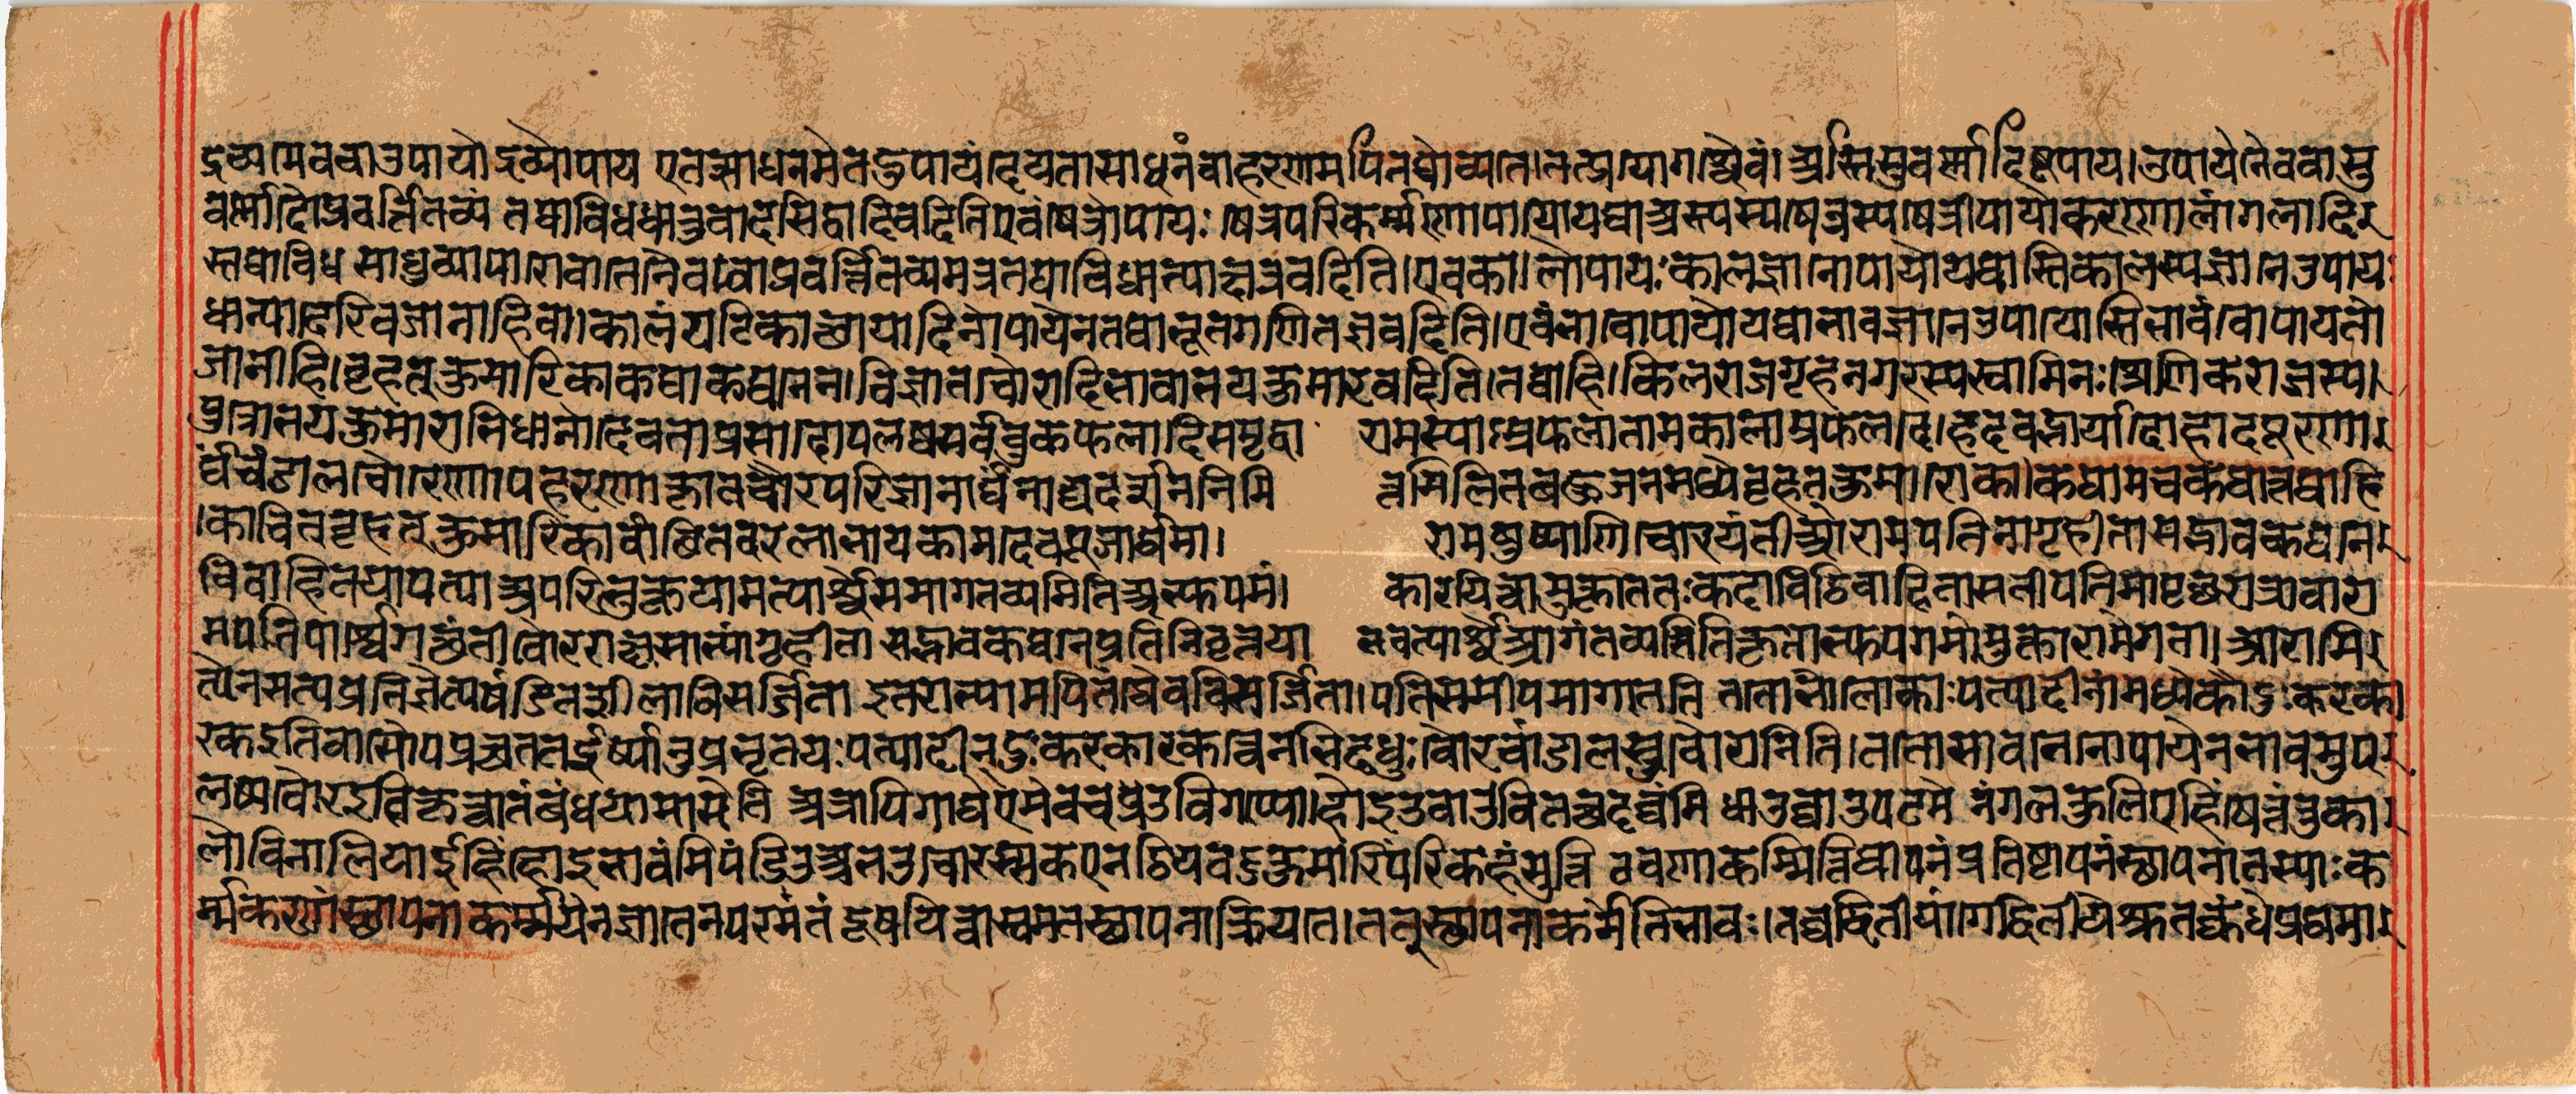 द्रव्यमेव वा उपायो द्रव्योपाय एतत्साधनमेतदुपादेयतासाधनं वाहरणमपि तथोच्यते तत्प्रयोगश्चैवं अस्ति सुवर्णादिषूपाय उपायेनैव वा सु
वर्णादौ प्रवर्त्तितव्यं तथाविधधातुवादसिद्धादिवदिति एवं षेत्रोपायः षेत्रपरिकर्म्मणोपायो यथा अस्त्यस्य षेत्रस्य षेत्रीपायीकरणोलांगलादि
स्तथाविध साधुव्यापारो वा तेनैव वा प्रवर्त्तितव्यमत्र तथाविधान्यक्षेत्रवदिति एवं कालोपायः कालज्ञानोपायो यथास्ति कालस्य ज्ञाने उपायः
धान्यादेरिव जानीहि वा कालं घटिकाछायादिनोपायेन तथाभूतगणितज्ञवदिति एवं भावोपायो यथा भावज्ञाने उपायोस्ति भावं वोपायतो
जानीहि बृहत्कुमारिकाकथाकथनेन विज्ञातचौरादिभावाभयकुमारवदिति तथाहि किल राजगृहनगरस्वामिनः श्रेणिकराजस्य
पुत्रोभयकुमाराभिधानो देवताप्रसादोपलब्धसर्वर्त्तुकफलादिसमृद्धा रामस्याम्रफलानामकालाम्रफलदोहदवद्भार्यादोहदपूरणा
र्थं चंडालचौरेणापहरणे कृते चौरपरिज्ञानार्थं नाट्यदर्शननिमि त्तमिलितबहुजनमध्ये बृहत्कुमारिकाकथामचकथत् तथाहि
काचित् बृहत्कुमारिका वांछितवरलाभाय कामदेवपूजार्थमा रामे पुष्पाणि चोरयंती आरामपतिना गृहीता सद्भावकथने
विवाहितया पत्या अपरिभुक्तया मत्पार्श्वे समागंतव्यमित्यभ्युपगमं कारयित्वा मुक्ता ततः कदाचिद्विवाहिता सती पतिमापृछ्य रात्रावारा
मपतिपार्श्वे गछंती चौरराक्षसाभ्यां गृहीता सद्भावकथने प्रतिनिवृत्तया भवत्पार्श्वे आगंतव्यमिति कृताभ्युपगमा मुक्तारामे गता आरामि
केन सत्यप्रतिज्ञेत्यषंडितशीला विसर्जिता इतराभ्यामपि तथैव विसर्जिता पतिसमीपमागतेति ततो भो लोकाः पत्यादीनां मध्ये को दुःकरका
रक इति चासौ पप्रच्छ तत ईर्ष्यालुप्रभृतयः पत्यादीन् दुःकरकारकत्वेनाभिदधुः चौरचांडालस्तु चौरानिति ततोसावनेनोपायेन भावमुप
लक्ष्य चौर इति कृत्वा तं बंधयामासेति अत्रापि गाथे एमेव चउविगप्पो होइ उवाउ वि तत्थ दव्वंमि धाउव्वाउ पढमे नंगलकुलिएहिं षेत्तं तु का
लो वि नालियाईहिं होइ भावंमि पंडिउ अभउ चोरस्स कए नट्टिय वड्डकुमारिं परिकहेइत्ति ठवणाकम्मेति स्थापनं प्रतिष्ठापनं स्थापना तस्याः क
र्म्मकरणं स्थापनाकर्म्म येन ज्ञातेन परमतं दूषयित्वा स्वमतस्थापना क्रियते तत् स्थापनाकर्मेति भावः तच्च द्वितीयांगे द्वितीये श्रुतस्कंधे प्रथमा